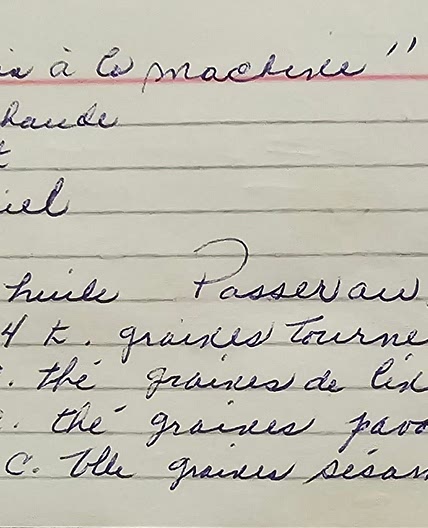 à la machine"
haude
t
iel
huile Passer au
4 t. graines Tourne
. thé graines de lin
. thé graines pavo
C. Tble graines sésam